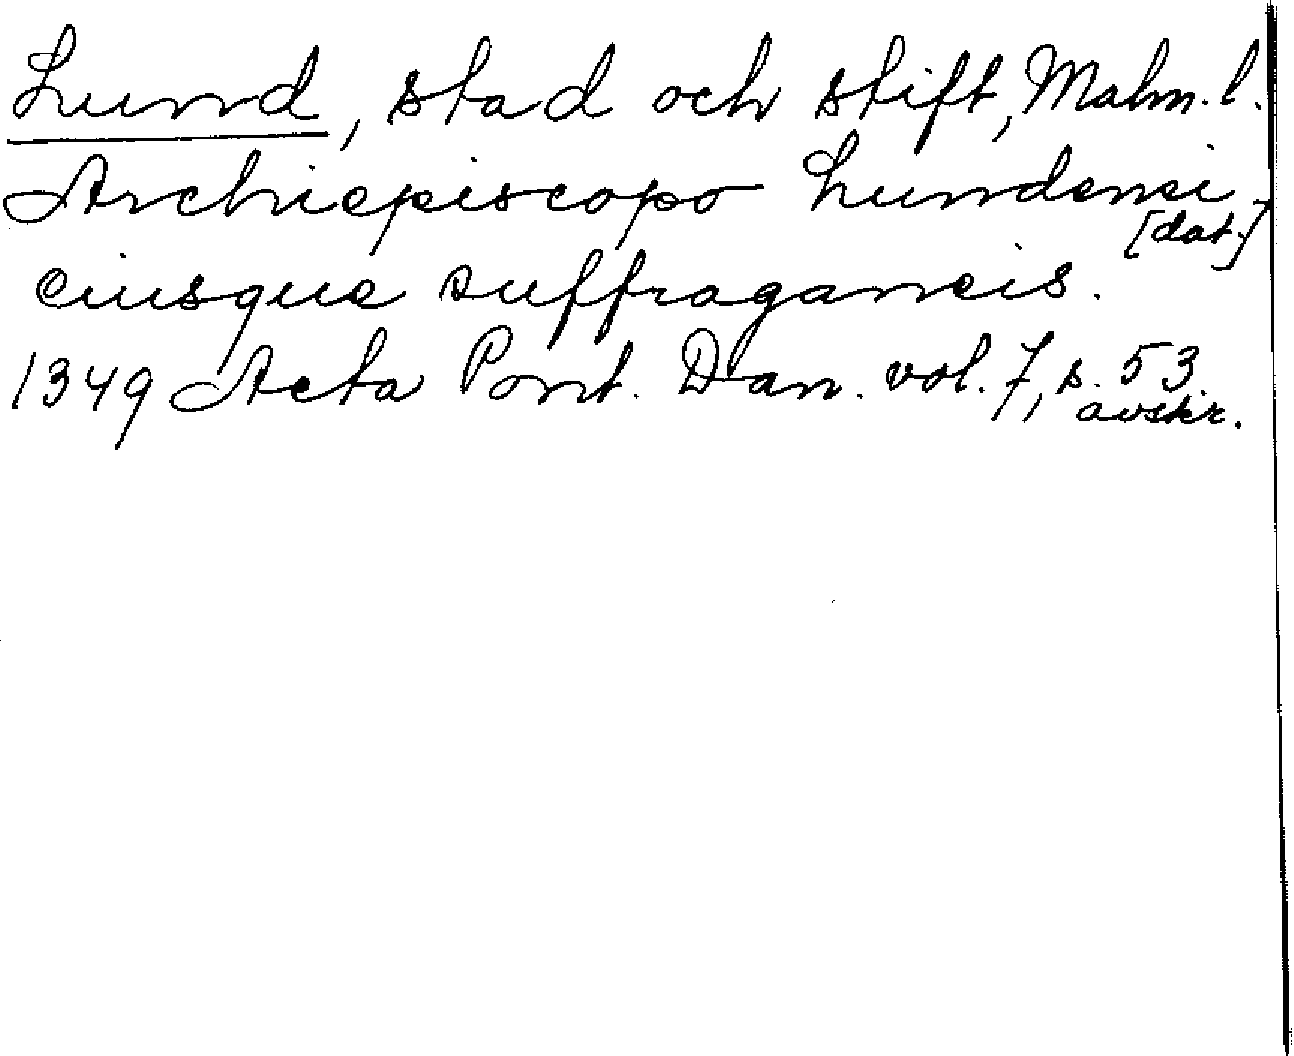 Lund, stad och stift, Malm. l.
Archiepiscopo Lundensi
[dat.]
eiusque suffraganeis.
1349 Acta Pont. Dan. vol. 7, s. 53.
avskr.